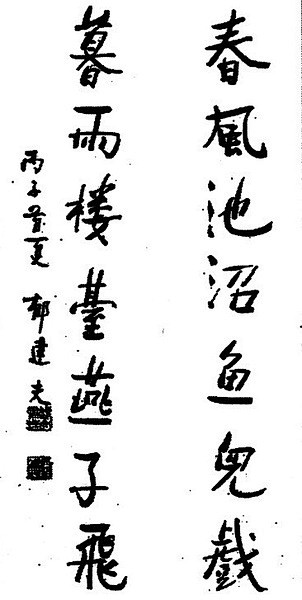 春風池沼鱼兒戲
暮雨楼臺燕子飛
丙子首夏 郁建夫